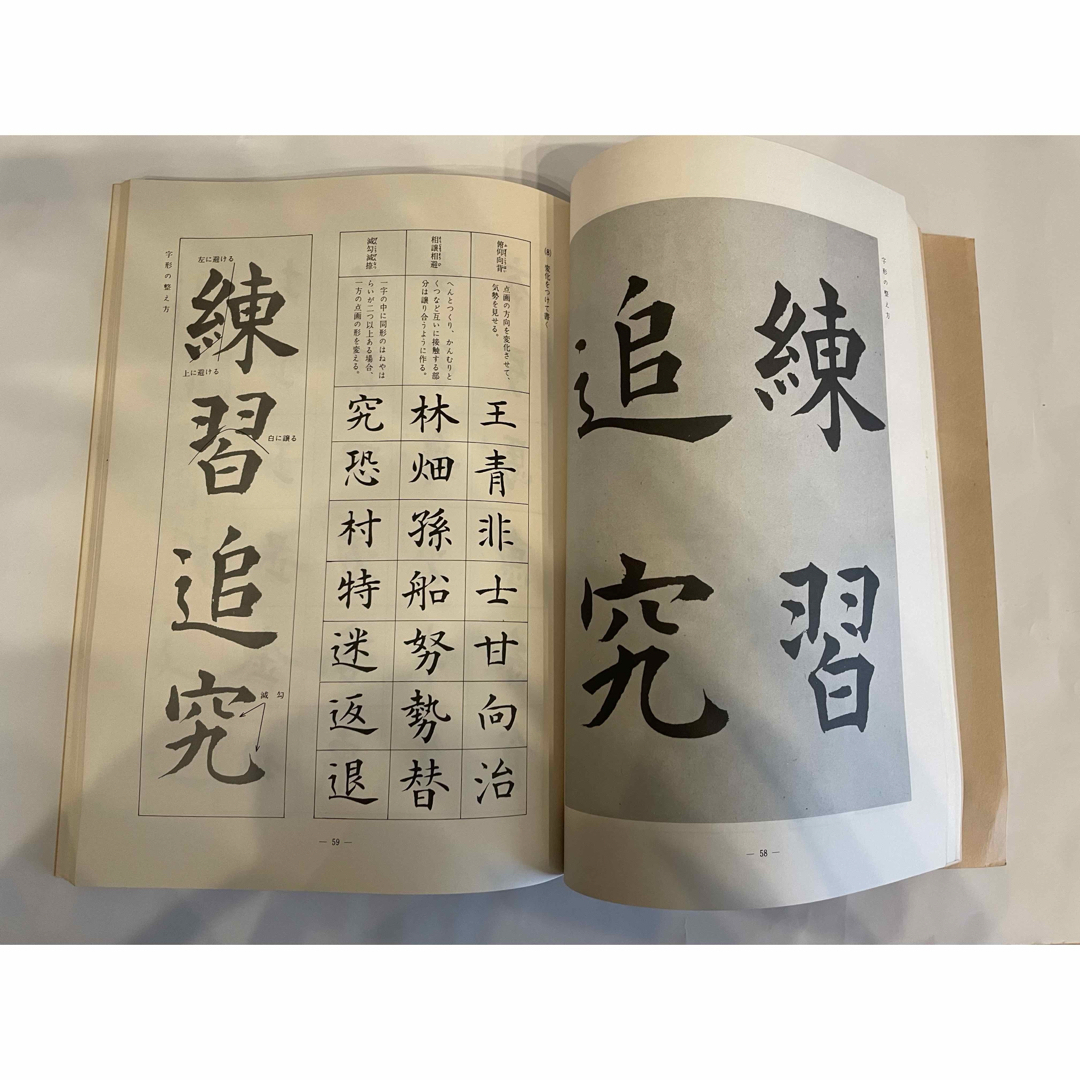 字形の整え方
練習
追究
— 58 —
(8) 変化をつけて書く
俯仰向背
点画の方向を変化させて、
気勢を見せる。
王青非士甘向治
相譲相避
へんとつくり、かんむりと
くつなど互いに接触する部
分は譲り合うように作る。
林畑孫船努勢替
減勾減捺
一字の中に同形のはねやは
らいが二つ以上ある場合、
一方の点画の形を変える。
究恐村特迷返退
練習追究
左に避ける
上に避ける
白に譲る
減勾
字形の整え方
— 59 —